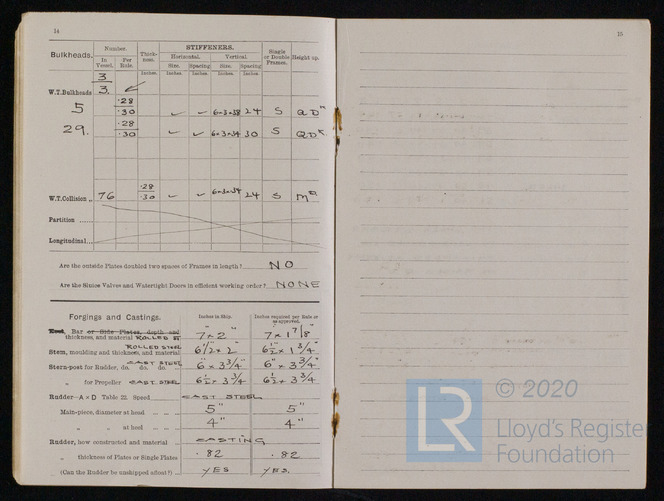 14
Bulkheads. Number. Thick-ness. STIFFENERS. Single or Double Frames. Height up.
In Vessel. Per Rule. Horizontal. Vertical.
Size. Spacing Size. Spacing
Inches. Inches Inches. Inches. Inches.
3
W.T.Bulkheads 3.
5 .28
.30 6-3-38 24 S QDK
29. .28
.30 6-3-34 30 S QDK
.28
W.T.Collision „ 76 .30 6-3-34 24 S
Partition
Longitudinal
Are the outside Plates doubled two spaces of Frames in length? NO
Are the Sluice Valves and Watertight Doors in efficient working order? NONE
Forgings and Castings. Inches in Ship. Inches required per Rule or as approved.
Keel, Bar or Side Plates, depth and
thickness, and material ROLLED ST 7" × 2" 7" × 1 7/8"
ROLLED STEEL
Stem, moulding and thickness, and material 6 1/2 × 2" 6 1/2" × 1 3/4"
CAST STEEL
Stern-post for Rudder, do. do. do. 6" × 3 3/4" 6" × 3 3/4"
„ for Propeller CAST STEEL 6 1/2" × 3 3/4 6 1/2" × 3 3/4
Rudder—A × D Table 22. Speed CAST STEEL
Main-piece, diameter at head 5" 5"
„ „ at heel 4" 4"
Rudder, how constructed and material CASTING
„ thickness of Plates or Single Plates .82 .82
(Can the Rudder be unshipped afloat?) YES YES.
15
© 2020
LR Lloyd's Register
Foundation